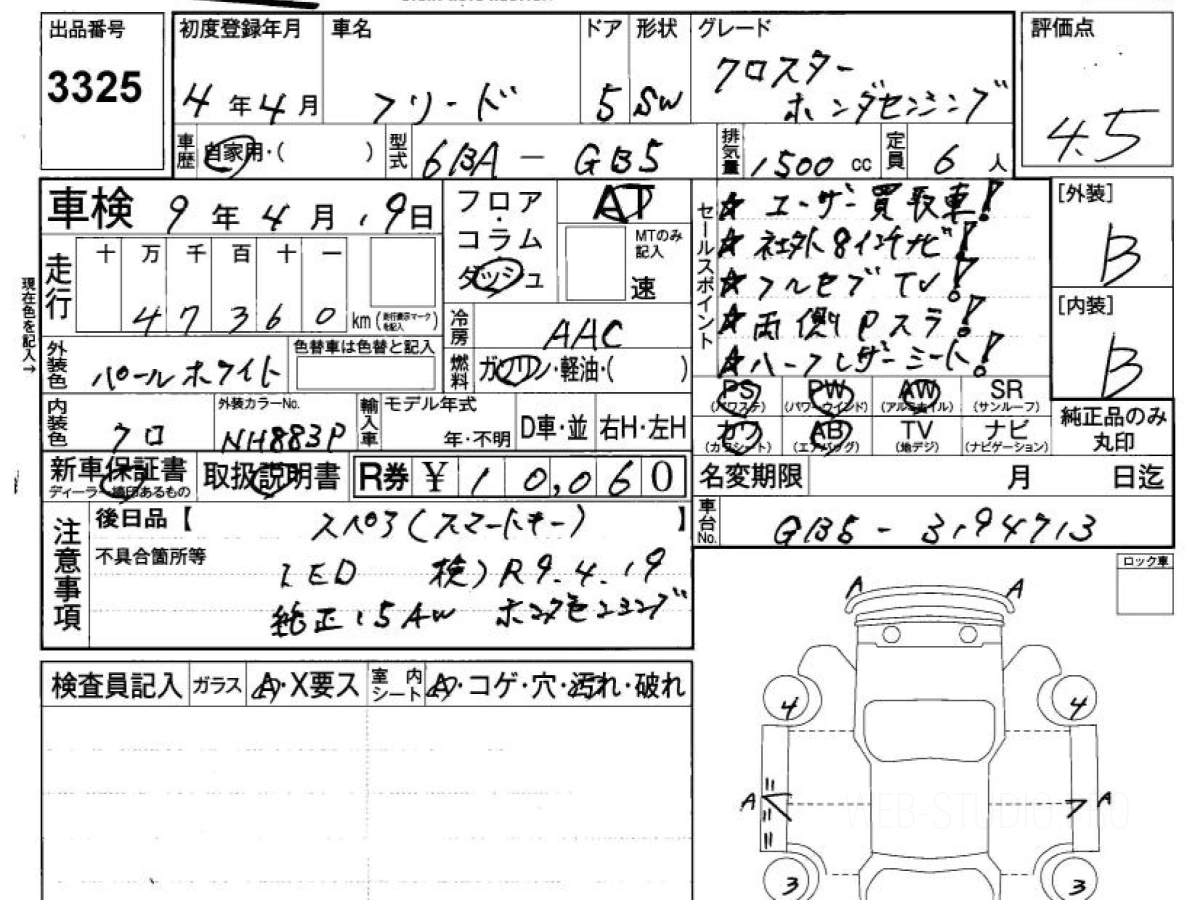 出品番号
3325
初度登録年月 車名 ドア 形状 グレード
4年4月 フリード 5 SW クロスター
ホンダセンシング
評価点
4.5
車歴 自家用・( ) 型式 6BA-GB5 排気量 1500cc 定員 6人
車検 9年4月19日
フロア・コラム・ダッシュ
AT
MTのみ記入
速
セールスポイント
☆ユーザー買取車!
☆社外8インチナビ!
☆フルセグTV!
☆両側Pスラ!
☆ハーフレザーシート!
[外装]
B
[内装]
B
現在色を記入→
走行 十 万 千 百 十 一
47360 km(走行表示マークを記入)
冷房 AAC
外装色 パールホワイト 色替車は色替と記入
燃料 ガソリン・軽油・( )
PS PW AW SR
(パワステ) (パワーウインド) (アルミホイル) (サンルーフ)
カワ AB TV ナビ
(カワシート) (エアバッグ) (地デジ) (ナビゲーション)
純正品のみ丸印
内装色 クロ 外装カラーNo. NH883P 輸入車 モデル年式 年・不明 D車・並 右H・左H
新車保証書 取扱説明書 R券 ¥10,060
ディーラー捺印あるもの
名変期限 月 日迄
車台No. GB5-3194713
注意事項
後日品【 スペア(スマートキー) 】
不具合箇所等
LED 検)R9.4.19
純正15AW ホンダセンシング
ロック車
検査員記入 ガラス A・X要ス 室内シート A・コゲ・穴・汚れ・破れ
A A
4 4
A A
3 3
WEB-STUDIO.PRO